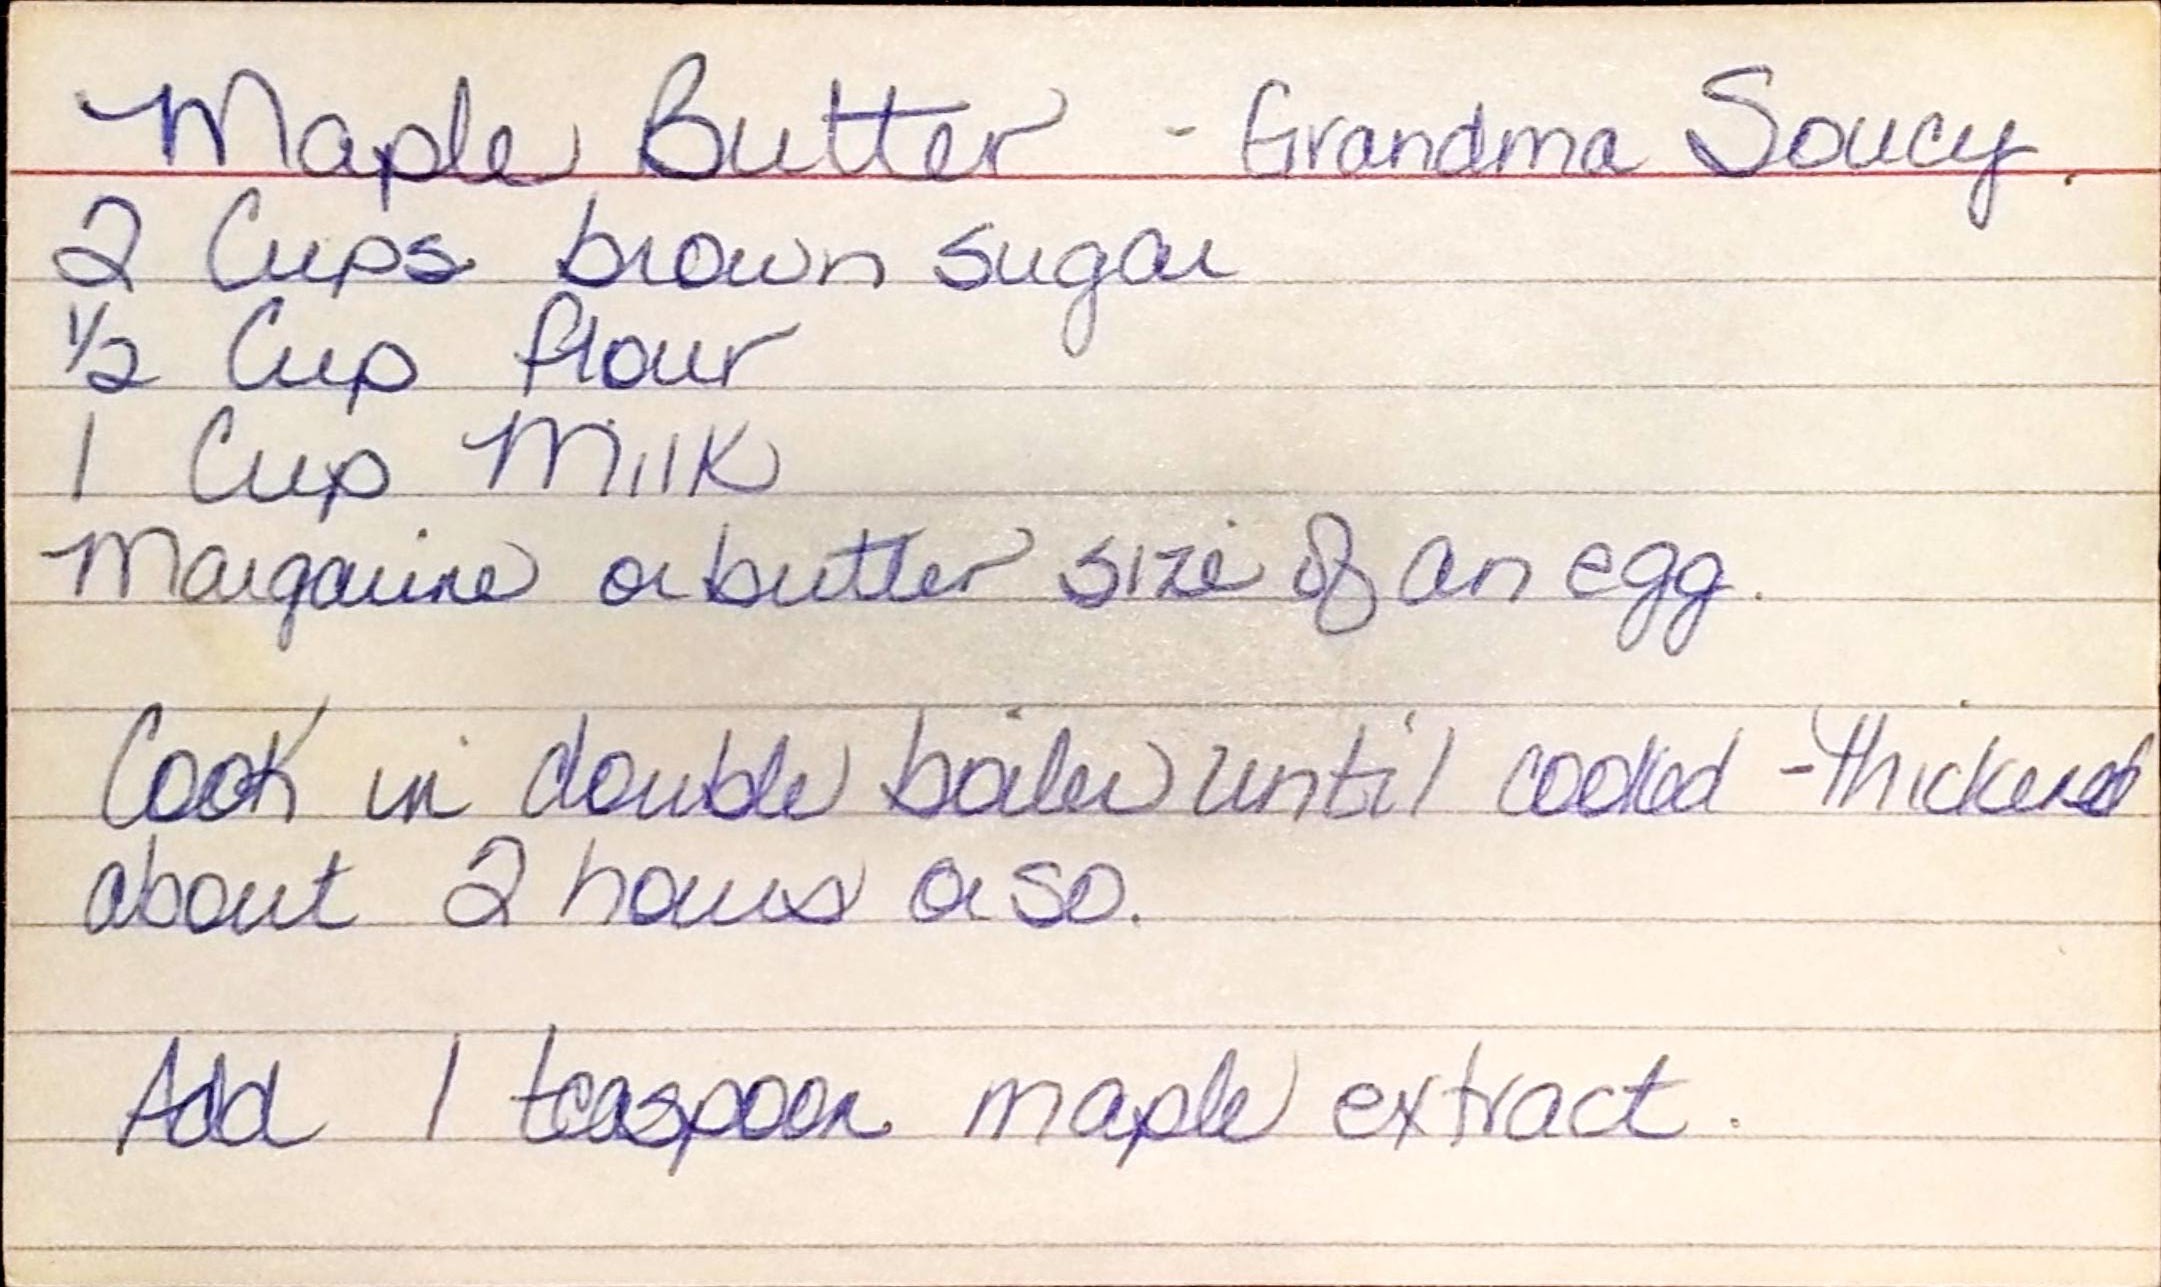 Maple Butter - Grandma Soucy.
2 Cups brown sugar
1/2 Cup flour
1 Cup Milk
Margarine or butter size of an egg.
Cook in double boiler until cooked - thickened
about 2 hours or so.
Add 1 teaspoon maple extract.